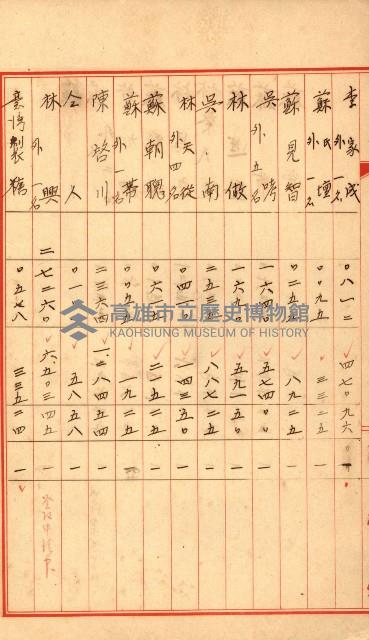 李家成 外一名 〇八一二 四七〇九六〇 一
蘇氏壇 外一名 〇〇九五 三三二五 一
蘇見智 〇〇二五 八九二五 一
吳 外五名 一六四〇 五七四〇〇 一
林做 一六九〇 五九一五〇 一
吳南 二五三五 八八七二五 一
林天從 外四名 〇四一〇 一四三五〇 一
蘇朝聰 〇六一五 二一五二五 一
蘇帶 外一名 〇〇五五 一九二五 一
陳啓川 二三六四 一二八四五四 一
仝人 〇一 五八五八 一
林興 外一名 二七二六〇 六五〇三四五 一
臺灣製糖 〇〇五七八 三三五二四 一
高雄市立歷史博物館
KAOHSIUNG MUSEUM OF HISTORY